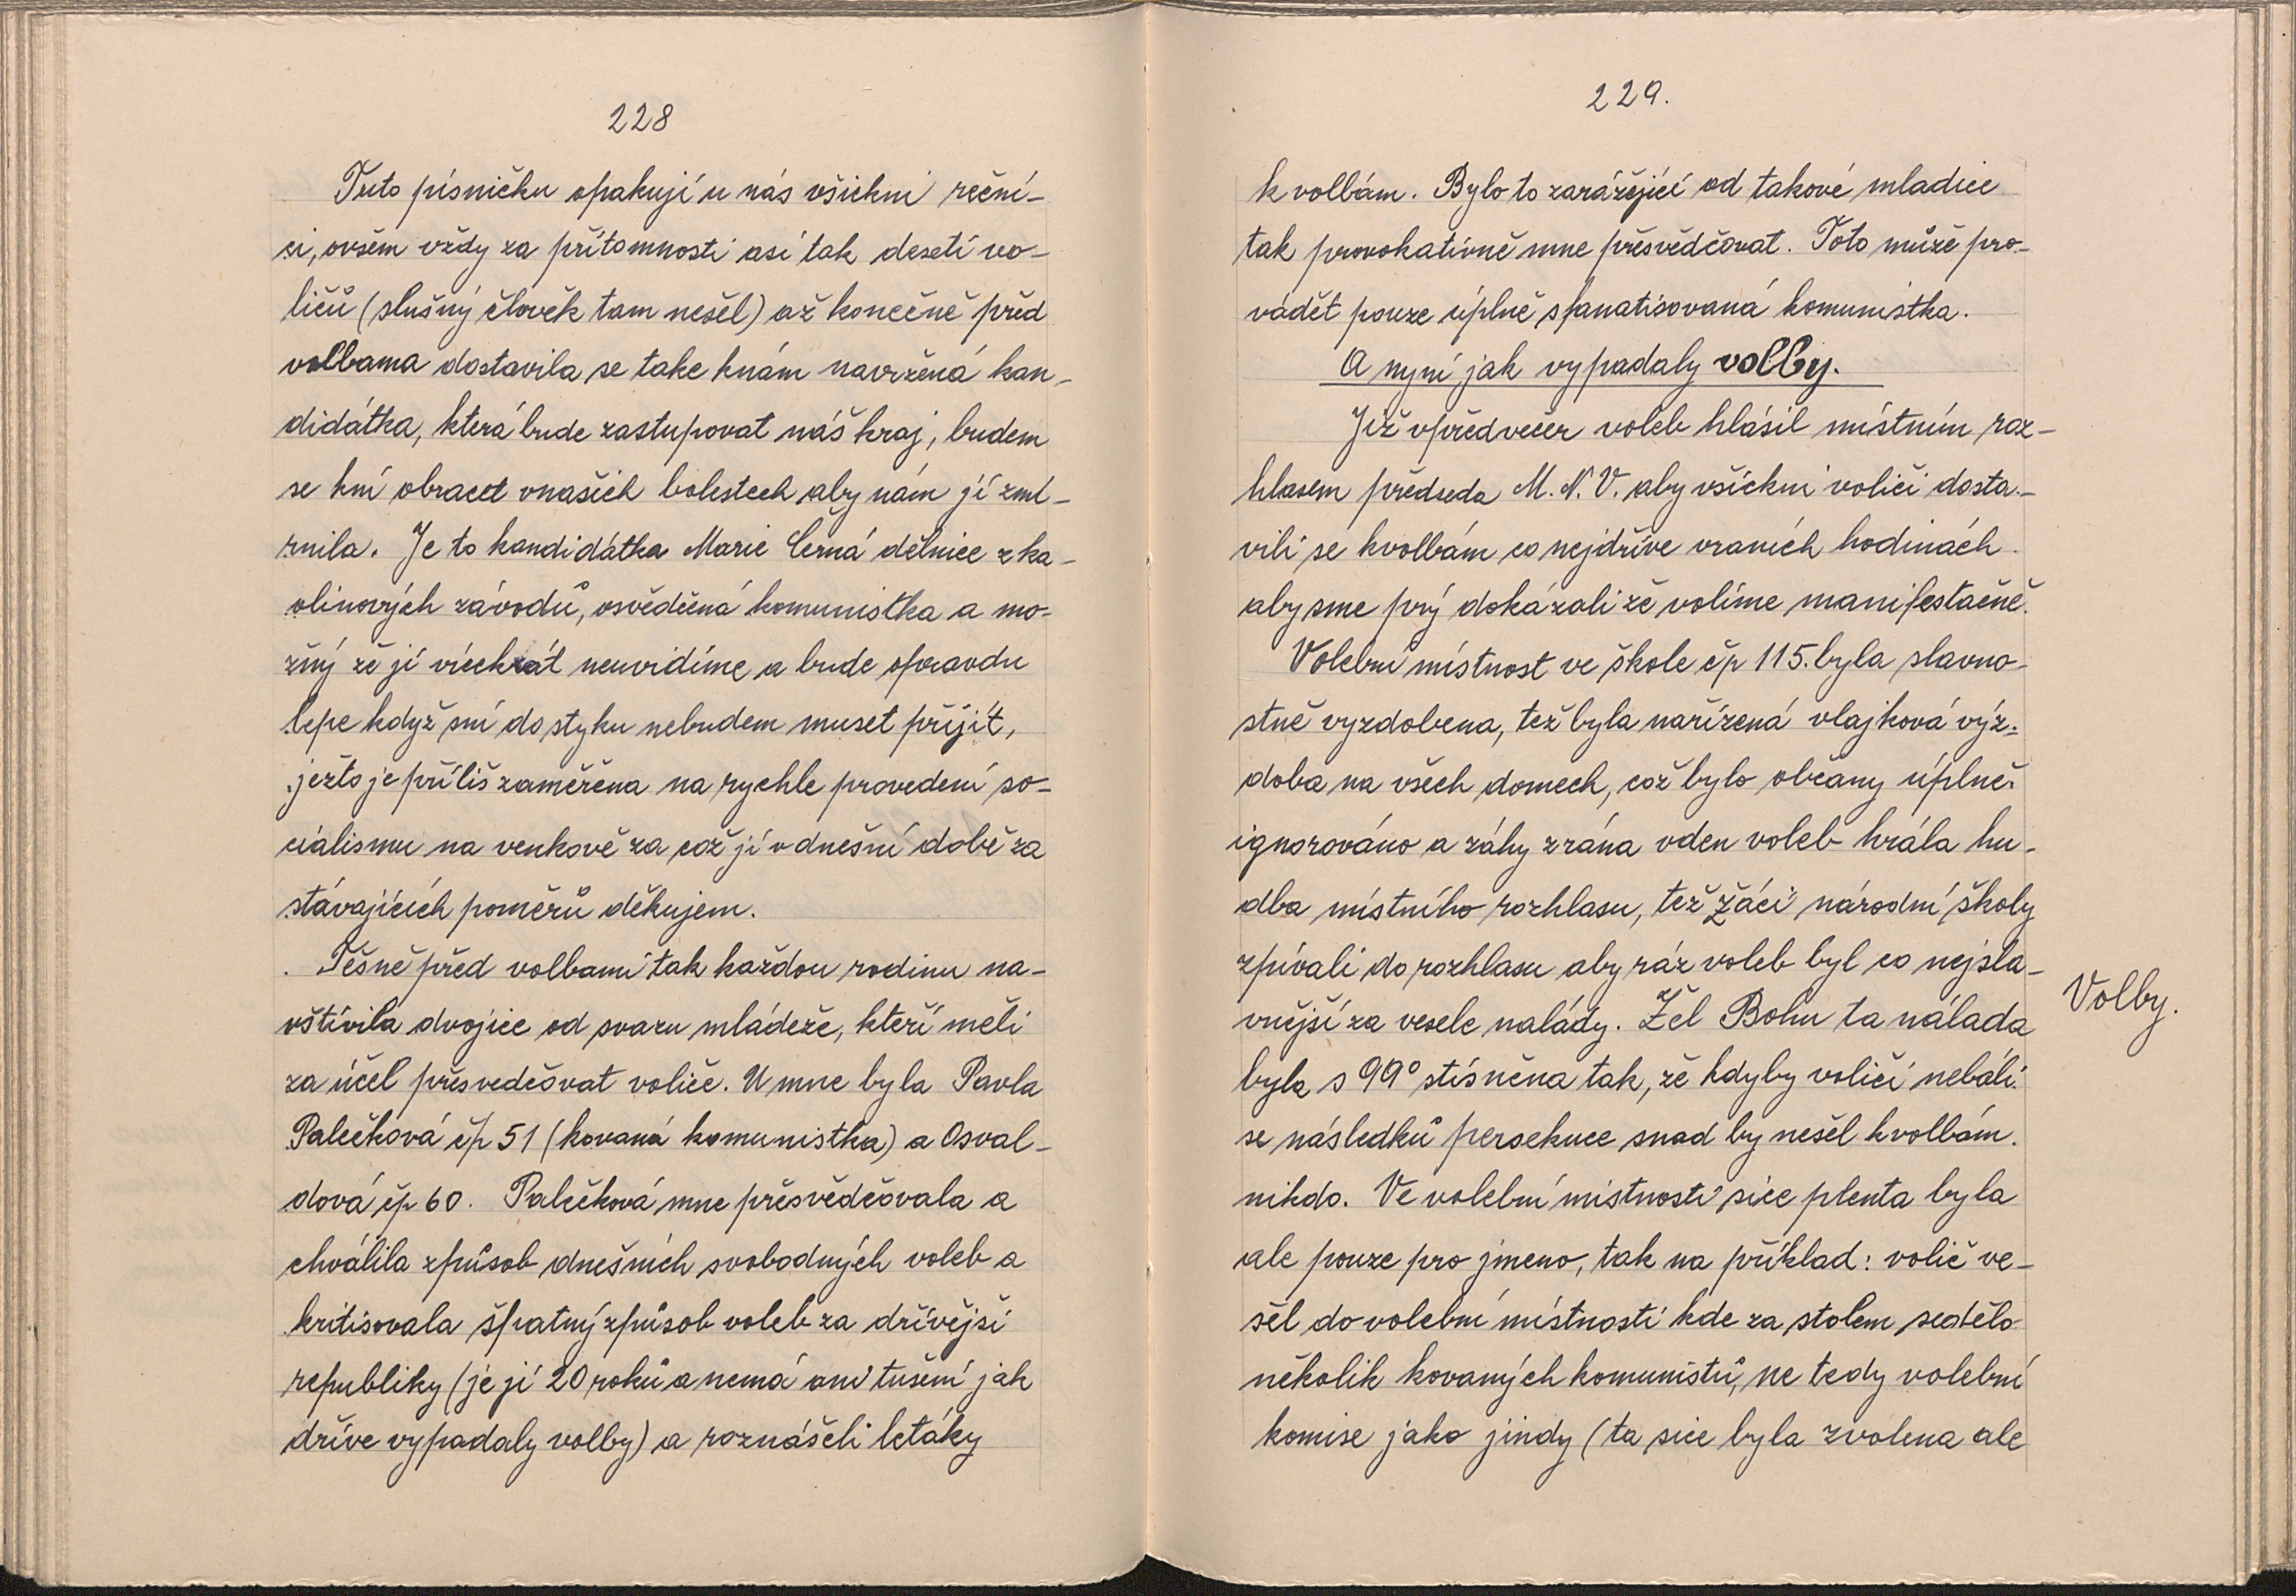 228
Tuto písničku opakují u nás všichni reční-
ci, ovšem vždy za přítomnosti asi tak deseti vo-
ličů (slušný člověk tam nešel) až konečně před
volbama dostavila se take knám navržená kan-
didátka, která bude zastupovat náš kraj, budem
se kní obracet vnašich bolestech aby nám jí zmí-
rnila. Je to kandidátka Marie Černá dělnice z ka-
olinových závodů, osvědčená komunistka a mo-
žný že jí víckrát neuvidíme a bude opravdu
lepe když sní do styku nebudem muset příjít,
ježto je příliš zaměřena na rychle provedení so-
cialismu na venkově za což jí v dnešní době za
stávajících poměrů děkujem.
Těsně před volbami tak každou rodinu na-
vštívila dvojice od svazu mládeže, kteří měli
za účel přesvedčovat voliče. U mne byla Pavla
Palečková čp 51 (kovaná komunistka) a Osval-
dová čp 60. Palečková mne přesvědčovala a
chválila způsob dnešních svobodných voleb a
kritisovala špatný způsob voleb za dřívější
republiky (je jí 20 roků a nemá ani tušení jak
dříve vypadaly volby) a roznášeli letáky
229.
k volbám. Bylo to zarážející od takové mladice
tak provokativně mne přesvědčovat. Toto může pro-
vádět pouze úplně sfanatisovaná komunistka.
A nyní jak vypadaly volby.
Již vpředvečer voleb hlásil místním roz-
hlasem předseda M. N. V. aby všickni voliči dosta-
vili se kvolbám co nejdříve vraních hodinách
aby sme prý dokázali že volíme manifestačně.
Volební místnost ve škole čp 115. byla slavno-
stně vyzdobena, tež byla nařízená vlajková výz-
doba na všech domech, což bylo občany úplně
ignorováno a záhy zrána vden voleb hrála hu-
dba místního rozhlasu, tež žáci národní školy
zpívali do rozhlasu aby ráz voleb byl co nejsla-
vnější za vesele nalády. Žel Bohu ta nálada
byla s 99° stísněna tak, že kdyby voliči nebáli
se následků persekuce snad by nešel kvolbám
nikdo. Ve volební místnosti sice plenta byla
ale pouze pro jmeno, tak na příklad: volič ve-
šel do volební místnosti kde za stolem sedělo
několik kovaných komunistů, ne tedy volební
komise jako jindy (ta sice byla zvolena ale
Volby.